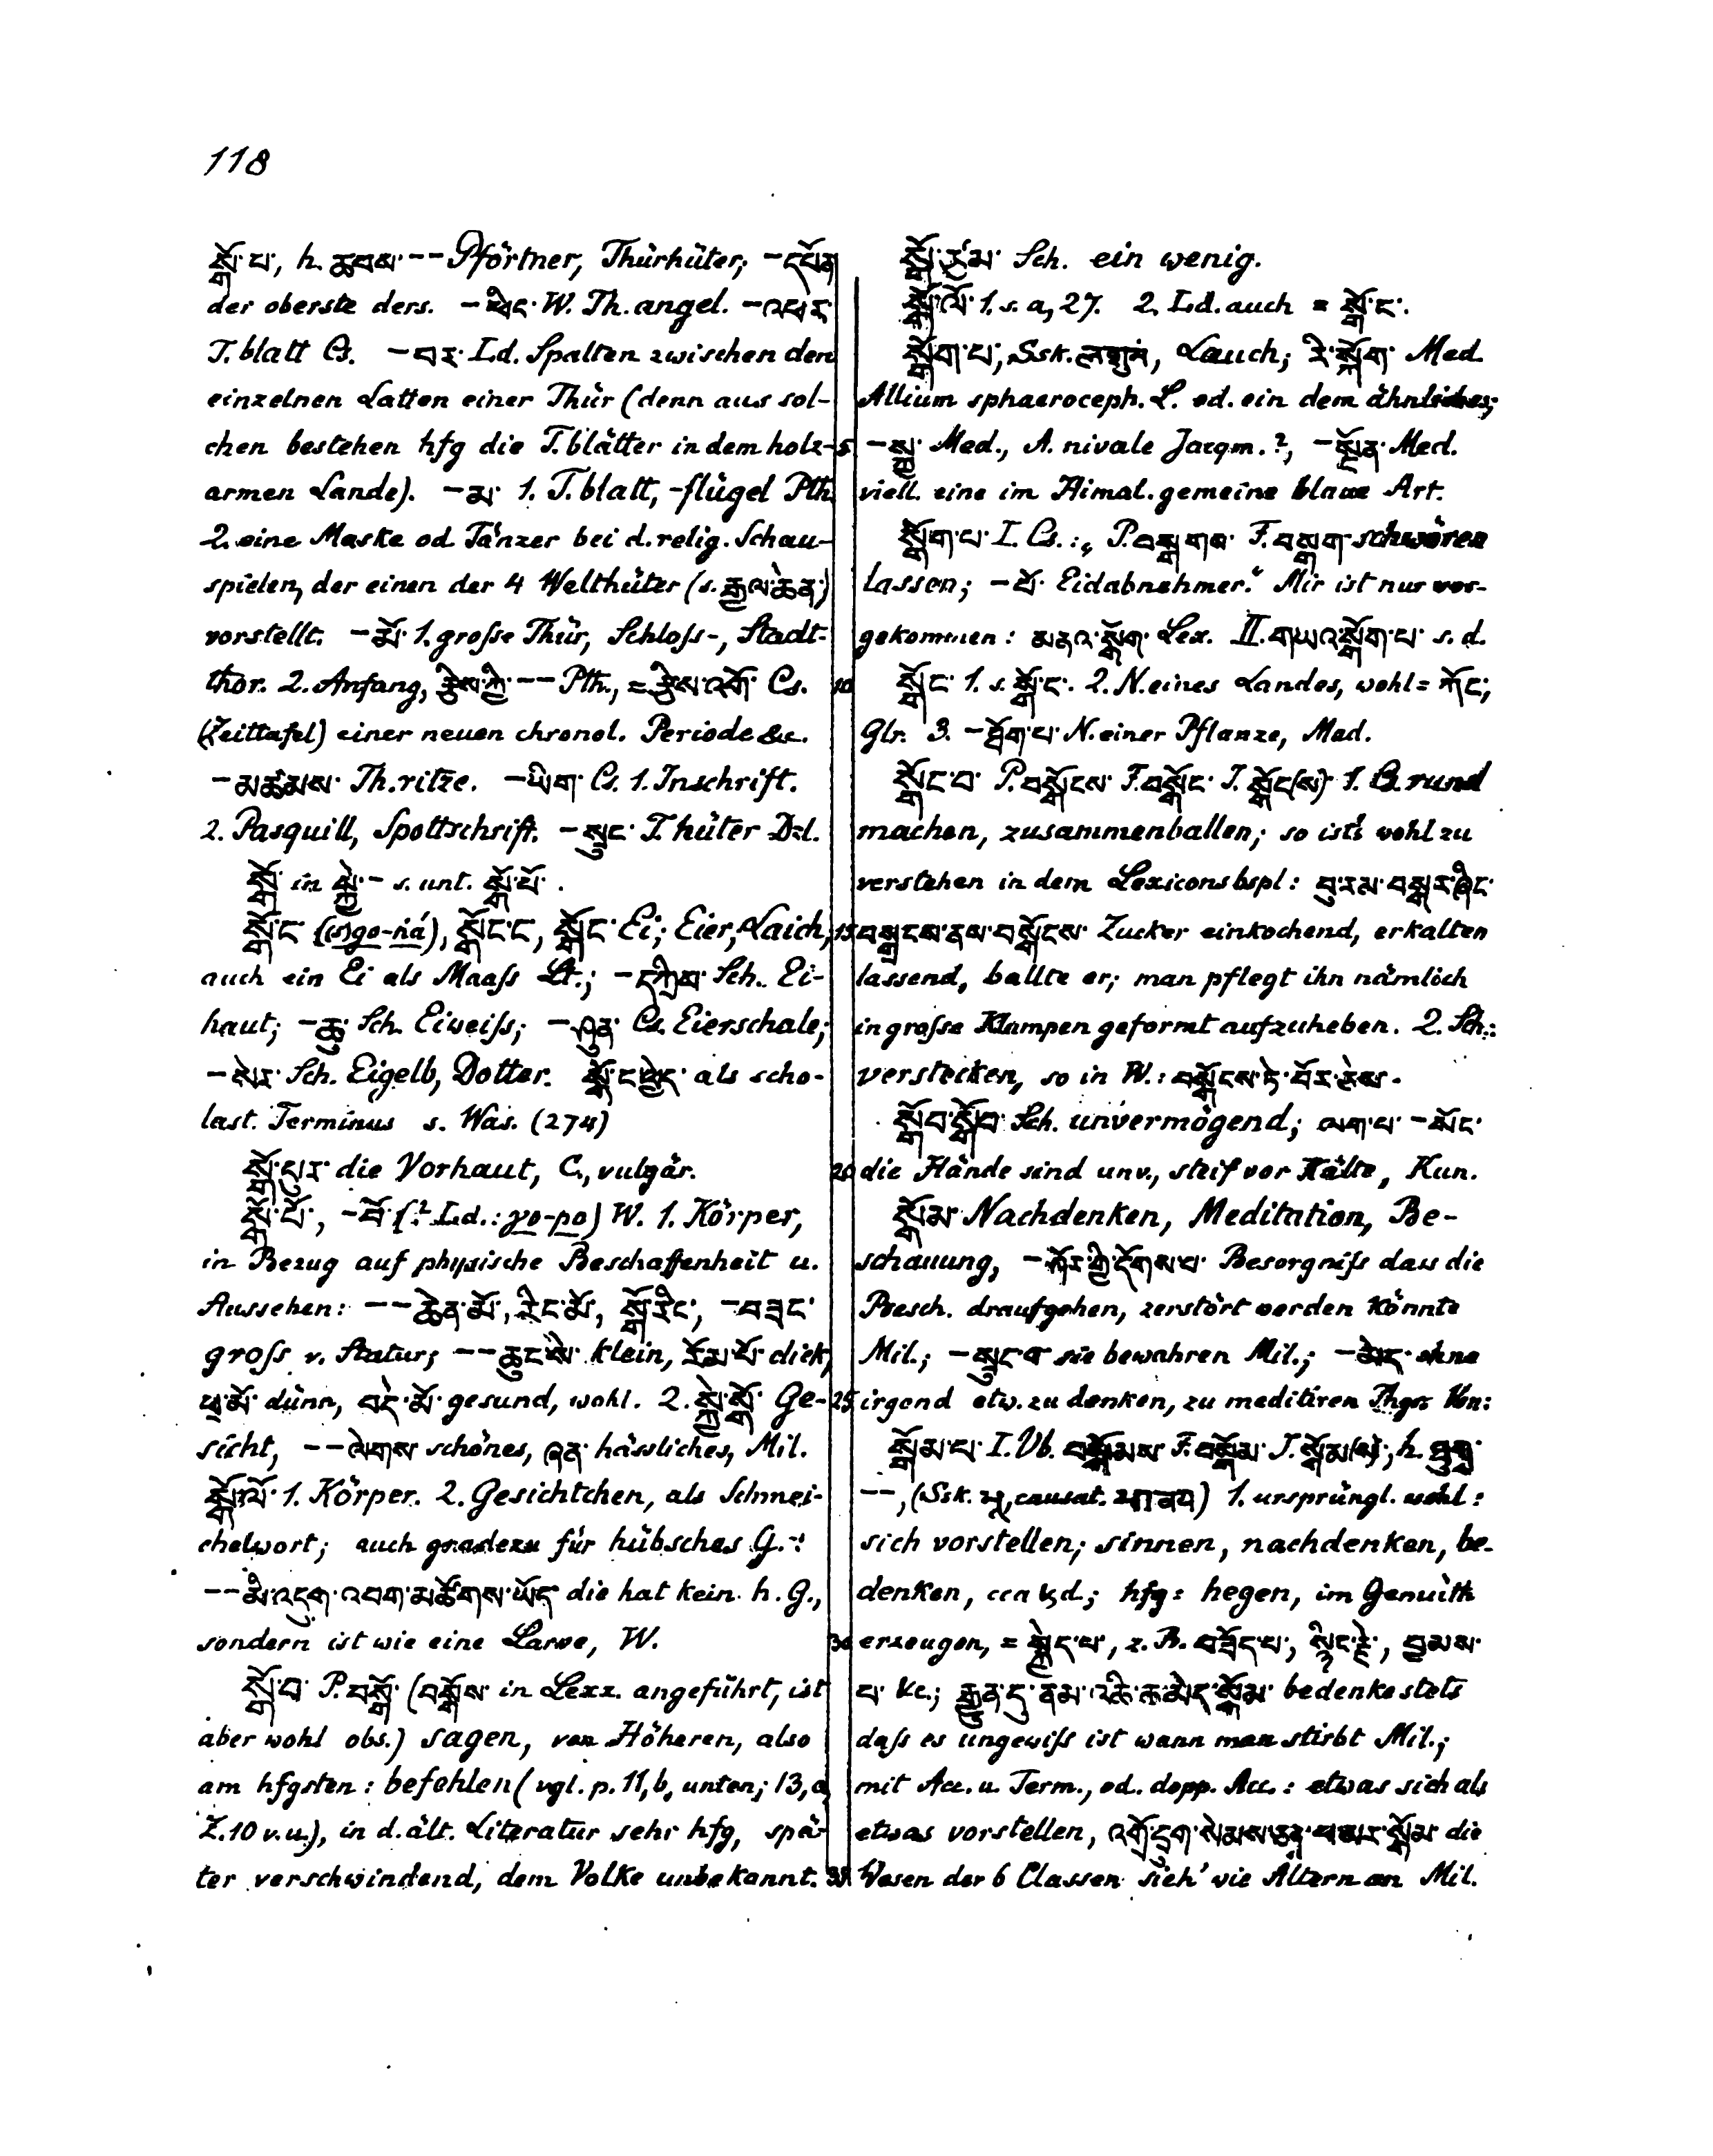 118
སྒོ་པ་, h. ཆབས་ -- Pförtner, Thürhüter; -དཔོན
der oberste ders. - ཕྱེད་ W. Th. angel. -འཕར་
T. blatt Cs. -བར་ Ld. Spalten zwischen den
einzelnen Latten einer Thür (denn aus sol-
chen bestehen hfg die T. blätter in dem holz-
armen Lande). -མ་ 1. T. blatt, -flügel Pth.
2. eine Maske od Tänzer bei d. relig. Schau-
spielen, der einen der 4 Welthüter (s. རྒྱལ་ཆེན་)
vorstellt. -མོ་ 1. grosse Thür, Schloss-, Stadt-
thor. 2. Anfang, རྩིས་ཀྱི་ -- Pth., = རྩིས་འགོ་ Cs.
(Zeittafel) einer neuen chronol. Periode &c.
-མཚམས་ Th. ritze. -ཡིག་ Cs. 1. Inschrift.
2. Pasquill, Spottschrift. -སྲུང་ T. hüter Dzl.
སྒོ་ in སྐྱེ་- s. unt. སྒོ་པོ་.
སྒོ་ང་ ((s)go-ṅá), སྒོང་ང་, སྒོང་ Ei; Eier, Laich,
auch ein Ei als Maass Lt.; - Sch. Ei-
haut; -ཆུ་ Sch. Eiweiss; -ཤུན་ Cs. Eierschale;
-སེར་ Sch. Eigelb, Dotter. སྒོ་ང་ཕྱེད་ als scho-
last. Terminus s. Was. (274)
སྒོ་པུར་ die Vorhaut, C., vulgär.
སྒོ་པོ་, -བོ་ (? Ld.: go-po) W. 1. Körper,
in Bezug auf physische Beschaffenheit u.
Aussehen: -- ཆེན་མོ་, རིང་མོ་, སྒོ་རིང་, -བཟང་
gross v. Statur; -- ཆུང་སེ་ klein, རོམ་པོ་ dick,
ཕྲ་མོ་ dünn, བདེ་མོ་ gesund, wohl. 2. སྐྱེ་སྒོ་ Ge-
sicht, -- ལེགས་ schönes, ཞན་ hässliches, Mil.
སྒོ་ལོ་ 1. Körper. 2. Gesichtchen, als Schmei-
chelwort; auch gradezu für hübsches G.:
-- མི་འདུག་འབག་མཚོགས་ཡོད་ die hat kein h. G.,
sondern ist wie eine Larve, W.
སྒོ་བ་ P. བསྒོ་ (བསྒོས་ in Lexx. angeführt, ist
aber wohl obs.) sagen, von Höheren, also
am hfgsten: befehlen (vgl. p. 11, b, unten; 13, a,
Z. 10 v. u.), in d. ält. Literatur sehr hfg, spä-
ter verschwindend, dem Volke unbekannt.
སྒོ་རུམ་ Sch. ein wenig.
སྒོ་ལོ་ 1. s. a, 27. 2. Ld. auch = སྒོ་ང་.
སྒོག་པ་, Ssk. लशुनं, Lauch; རི་སྒོག་ Med.
Allium sphaeroceph. L. od. ein dem ähnliches;
5 -སྐྱ་ Med., A. nivale Jacqm.?, -སྔོན་ Med.
viell. eine im Himal. gemeine blaue Art.
སྒོག་པ་ I. Cs.: „P. བསྒགས་ F. བསྒག་ schwören
lassen; -པོ་ Eidabnehmer.“ Mir ist nur vor-
gekommen: མནའ་སྒོག་ Lex. II. གཡའ་སྒོག་པ་ s. d.
10 སྒོང་ 1. s. སྒོ་ང་. 2. N. eines Landes, wohl = ཀོང་;
Glr. 3. -ཐོག་པ་ N. einer Pflanze, Med.
སྒོང་བ་ P. བསྒོངས་ F. བསྒོང་ J. སྒོང(ས)་ 1. B. rund
machen, zusammenballen; so ist's wohl zu
verstehen in dem Lexiconsbspl: བུ་རམ་བསྐར་ཞིང་
15 བསྒྲངས་ནས་བསྒོངས་ Zucker einkochend, erkalten
lassend, ballte er; man pflegt ihn nämlich
in grosse Klumpen geformt aufzuheben. 2. Sch.:
verstecken, so in W.: བསྒོངས་ཏེ་བོར་རེས་.
སྒོབ་སྒོབ་ Sch. unvermögend; ལག་པ་ -སོང་
20 die Hände sind unv., steif vor Kälte, Kun.
སྒོམ་ Nachdenken, Meditation, Be-
schauung, -ཤོར་གྱི་དོགས་པ་ Besorgniss dass die
Besch. draufgehen, zerstört werden könnte
Mil.; -སྲུང་བ་ sie bewahren Mil.; -མེད་ ohne
25 irgend etw. zu denken, zu meditiren Thgr. Von:
སྒོམ་པ་ I. Vb. བསྒོམས་ F. བསྒོམ་ J. སྒོམ(ས)་, h. ཐུགས་
--, (Ssk. भू, causat. भावय) 1. ursprüngl. wohl:
sich vorstellen; sinnen, nachdenken, be-
denken, cca &d.; hfg: hegen, im Gemüth
30 erzeugen, = སྐྱེད་པ་, z. B. བཟོད་པ་, སྙིང་རྗེ་, བྱམས་
པ་ &c.; རྒྱུན་དུ་ནམ་འཆི་ཆ་མེད་སྒོམ་ bedenke stets
dass es ungewiss ist wann man stirbt Mil.;
mit Acc. u. Term., od. dopp. Acc.: etwas sich als
etwas vorstellen, འགྲོ་དྲུག་སེམས་ཅན་ཕ་མར་སྒོམ་ die
35 Wesen der 6 Classen sieh' wie Ältern an Mil.